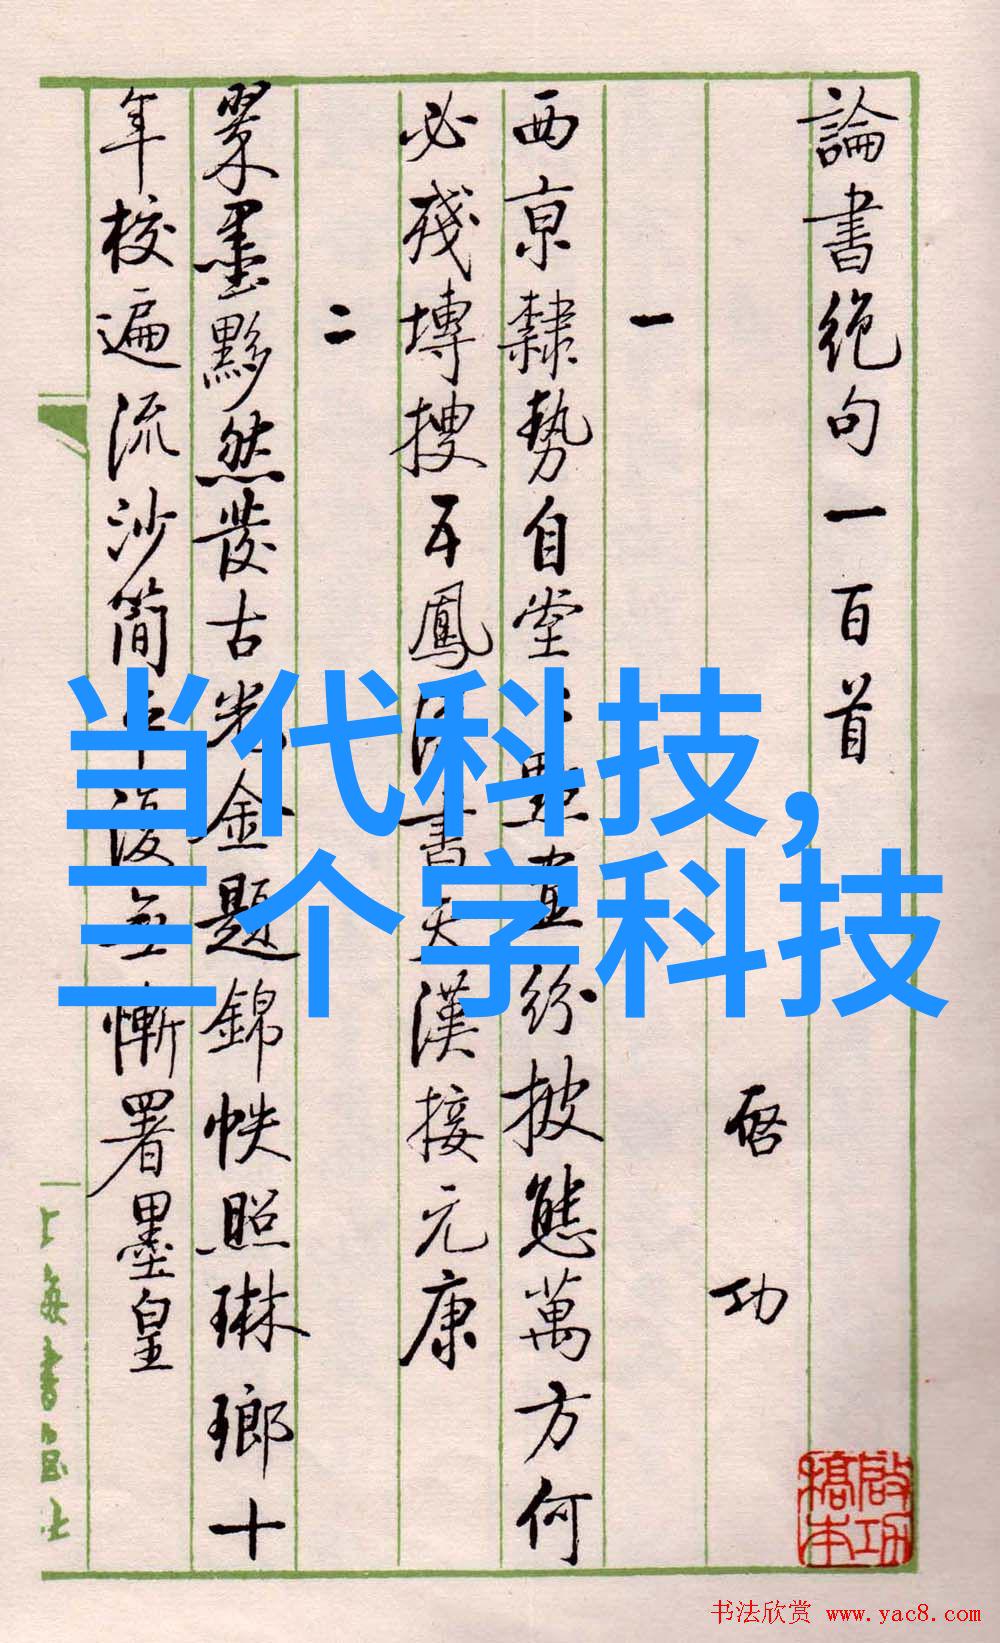 論書絕句一百首
啓功
一
西京隸勢自堂
點畫紛披態萬方何
必殘塼搜五鳳
書天漢接元康
二
翠墨黟然發古光金題錦帙照琳瑯十
年校遍流沙簡平復無慚署墨皇
啟功
稿本
上海書畫社
当代科技,
三个字科技
书法欣赏 www.yac8.com